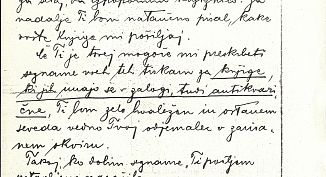 nadalje Ti bom natančno pisal, kake
vrste knjige mi pošiljaj.
Če Ti je torej mogoče mi preskrbeti
sezname vseh teh tiskarn za knjige,
kijih imajo se v zalogi, tudi antikvari
čne, Ti bom zelo hvaležen in ostanem
seveda vedno Tvoj odjemalec v zaris
nem okviru.
Takoj, ko dobim sezname, Ti pošljem